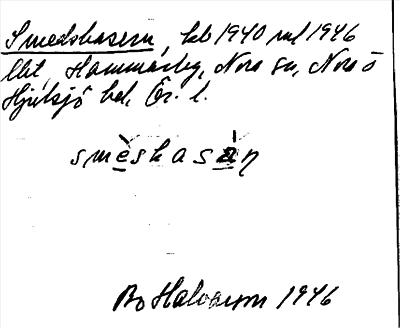 Smedshasern, lht 1940 rul 1946
lht, Hammarby, Nora sn, Nora o
Hjulsjö hd, Ör. l.
smèshasàn
Bo Halvarson 1946